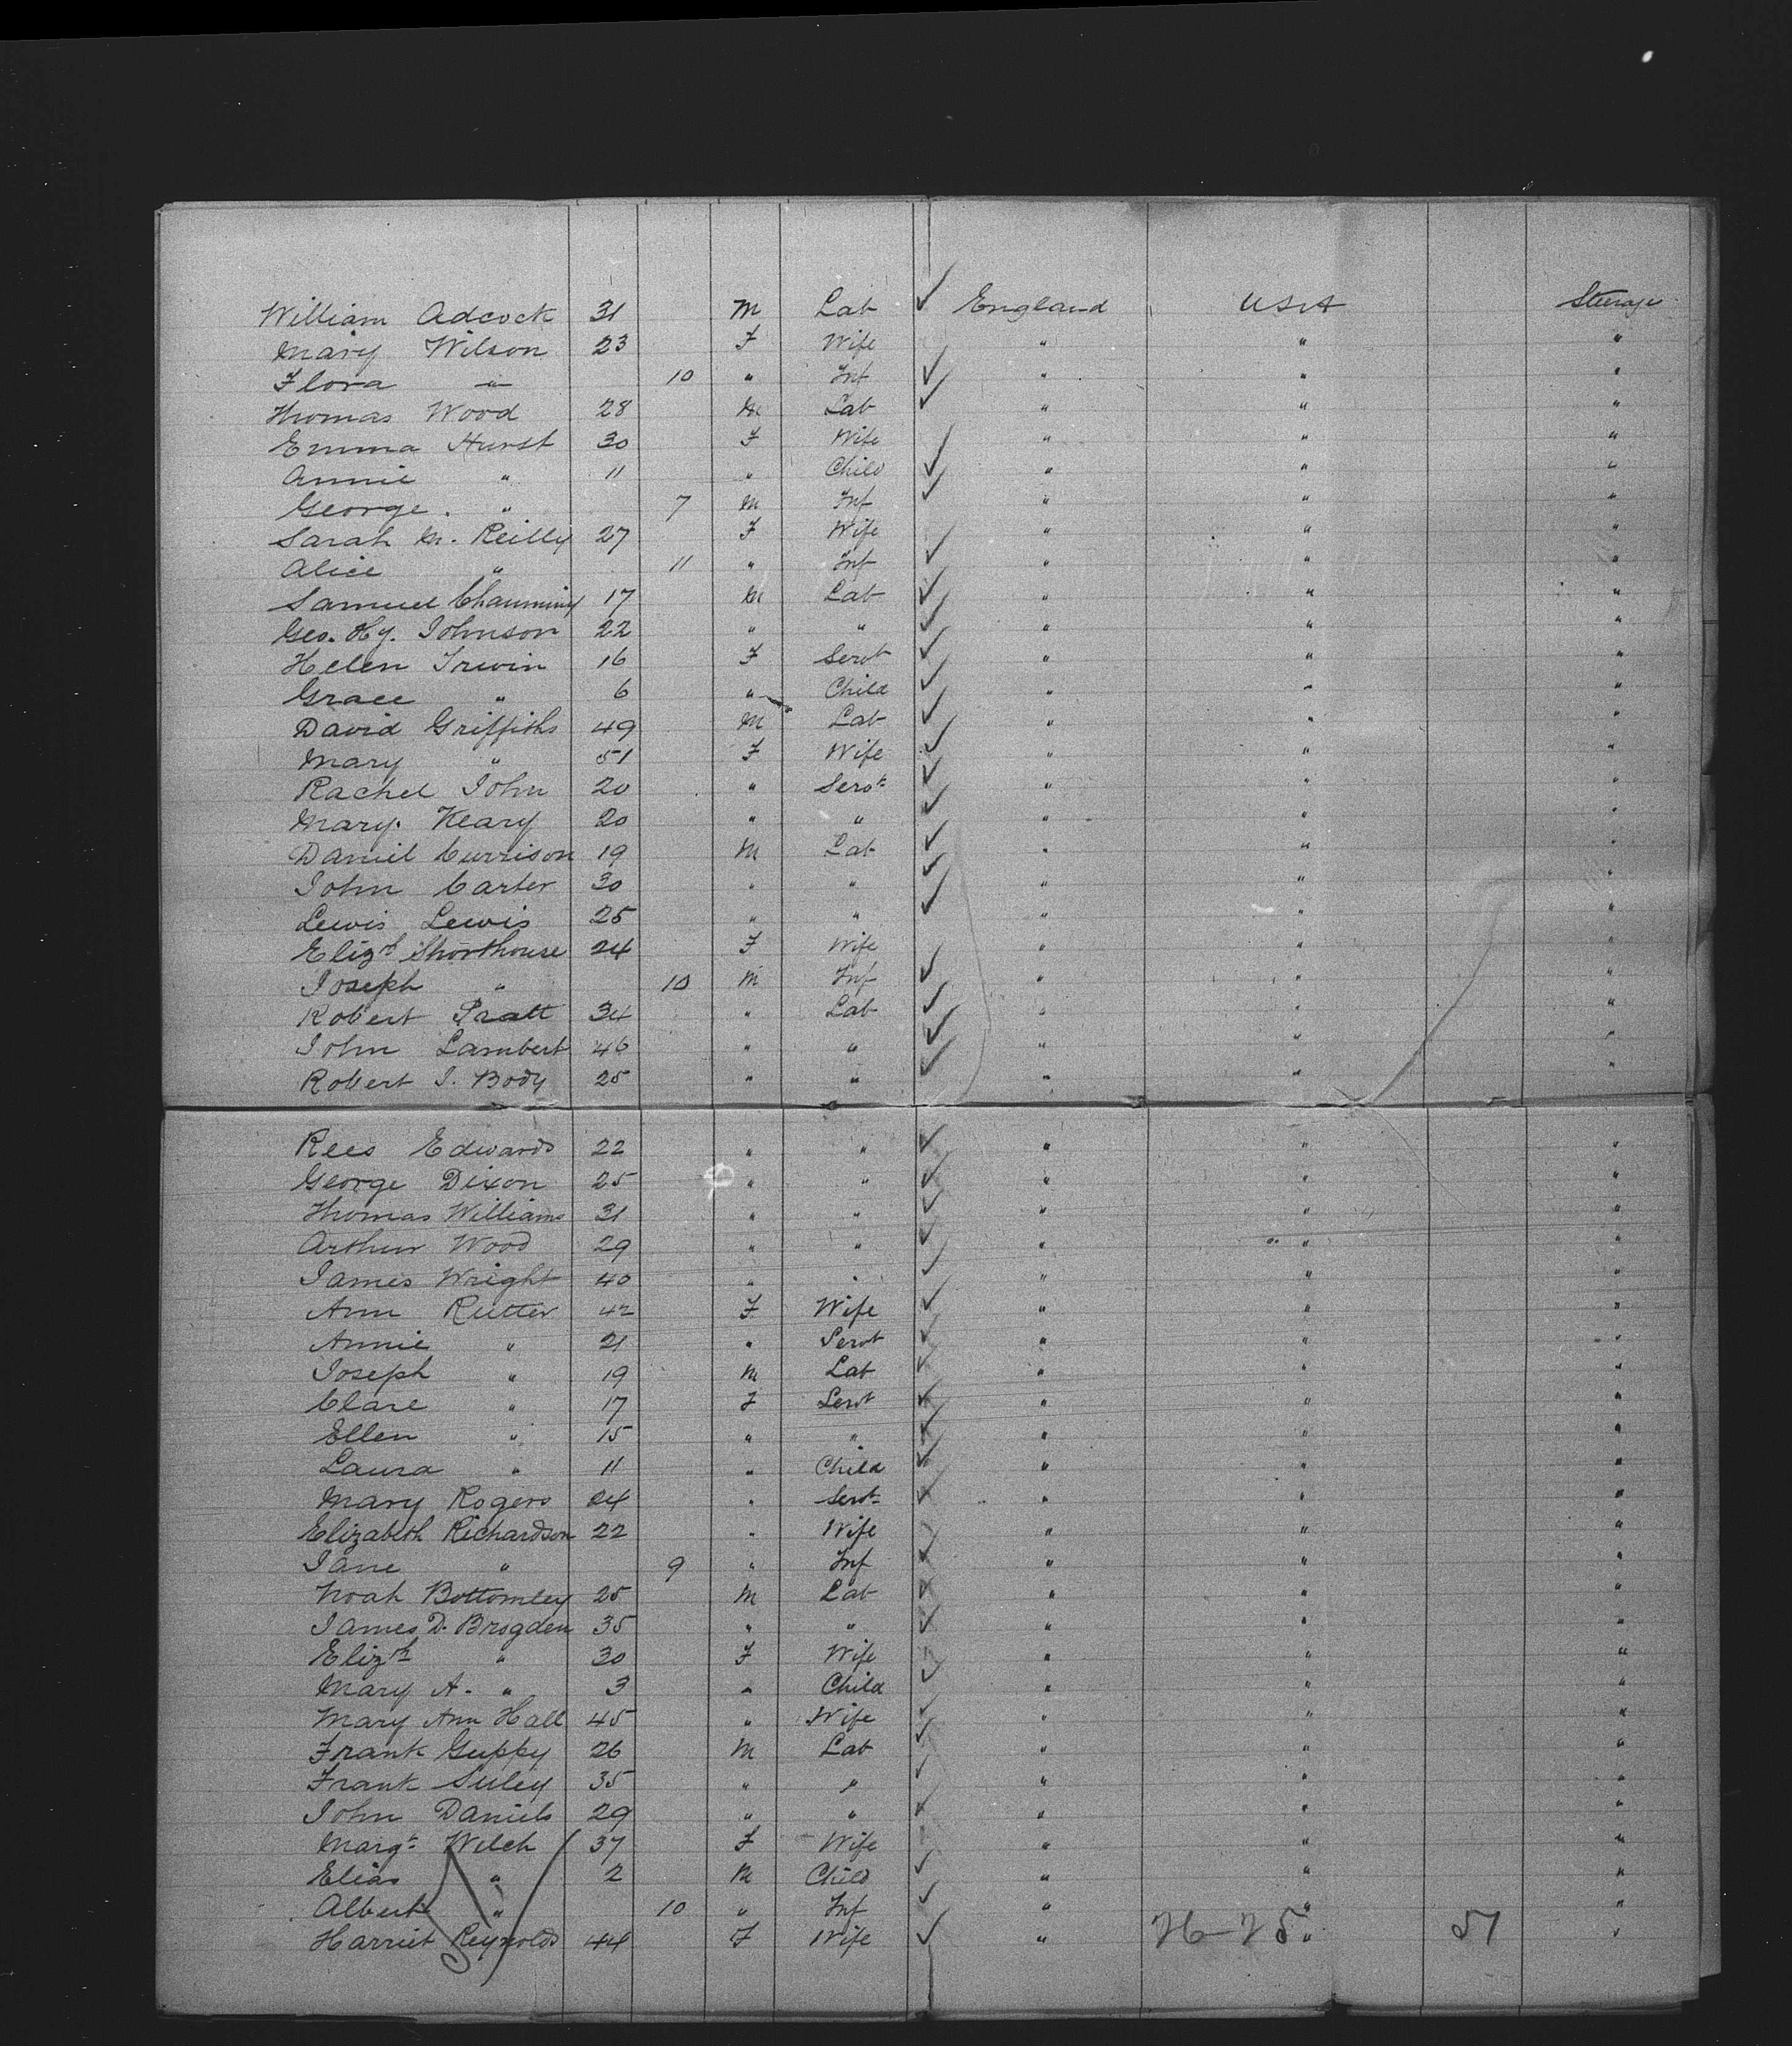 William Adcock 31 M Lab ✓ England USA Steerage
Mary Wilson 23 F Wife " " "
Flora " 10 " Inf ✓ " " "
Thomas Wood 28 M Lab ✓ " " "
Emma Hurst 30 F Wife " " "
Annie " 11 " Child ✓ " " "
George. " 7 M Inf ✓ " " "
Sarah M. Reilly 27 F Wife " " "
Alice " 11 " Inf ✓ " " "
Samuel 17 M Lab ✓ " " "
Geo. Hy. Johnson 22 " " ✓ " " "
Helen Irwin 16 F Servt ✓ " " "
Grace " 6 " Child ✓ " " "
David Griffiths 49 M Lab ✓ " " "
Mary " 51 F Wife ✓ " " "
Rachel John 20 " Servt ✓ " " "
Mary. Keary 20 " " ✓ " " "
Daniel Currison 19 M Lab ✓ " " "
John Carter 30 " " ✓ " " "
Lewis Lewis 25 " " ✓ " " "
Elizth Shorthouse 24 F Wife " " "
Joseph " 10 M Inf ✓ " " "
Robert Pratt 34 " Lab ✓ " " "
John Lambert 46 " " ✓ " " "
Robert J. Body 25 " " ✓ " " "
Rees Edwards 22 " " ✓ " " "
George Dixon 25 " " ✓ " " "
Thomas Williams 31 " " ✓ " " "
Arthur Wood 29 " " ✓ " " "
James Wright 40 " " ✓ " " "
Ann Rutter 42 F Wife ✓ " " "
Annie " 21 " Servt ✓ " " "
Joseph " 19 M Lab ✓ " " "
Clare " 17 F Servt ✓ " " "
Ellen " 15 " " ✓ " " "
Laura " 11 " Child ✓ " " "
Mary Rogers 24 " Servt ✓ " " "
Elizabeth Richardson 22 " Wife " " "
Jane " 9 " Inf ✓ " " "
Noah Bottomley 25 M Lab ✓ " " "
James D. Brogden 35 " " ✓ " " "
Elizth " 30 F Wife " " "
Mary A. " 3 " Child ✓ " " "
Mary Ann Hall 45 " Wife ✓ " " "
Frank Guppy 26 M Lab ✓ " " "
Frank 35 " " ✓ " " "
John Daniels 29 " " ✓ " " "
Margt Welch 37 F Wife " " "
Elias " 2 M Child ✓ " " "
Albert " 10 " Inf ✓ " " "
Harriet Reynolds 44 F Wife ✓ " 26-25 " 51 "